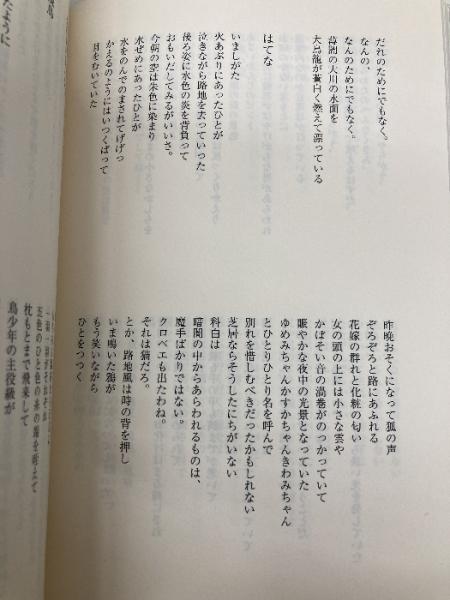 だれのためにでもなく。
なんの、
なんのためにでもなく。
暮闇の大川の水面を
大烏龍が蒼白く燃えて漂っている
はてな
いましがた
火あぶりにあったひとが
泣きながら路地を去っていった
後ろ姿に水色の炎を背負って
おもいだしてみるがいいさ。
今朝の空は朱色に染まり
水ぜめにあったひとが
水をのんでのまされてげげっ
かえるのようにはいつくばって
目をむいていた
昨晩おそくになって狐の声
ぞろぞろと路にあふれる
花嫁の群れと化粧の匂い
女の頭の上には小さな雲や
かぼそい音の渦巻がのっかっていて
賑やかな夜中の光景となっていた
ゆめみちゃんかすかちゃんきわみちゃん
とひとりひとり名を呼んで
別れを惜しむべきだったかもしれない
芝居ならそうしたにちがいない
科白は
暗闇の中からあらわれるものは、
魔手ばかりではない。
クロベエも出たわね。
それは猫だろ。
とか、路地風は時の背を押し
いま鳴いた鴉が
もう笑いながら
ひとをつつく
たように
五色のひと色の糸の端を咥えて
枕もとまで飛来して
鳥少年の主役級が